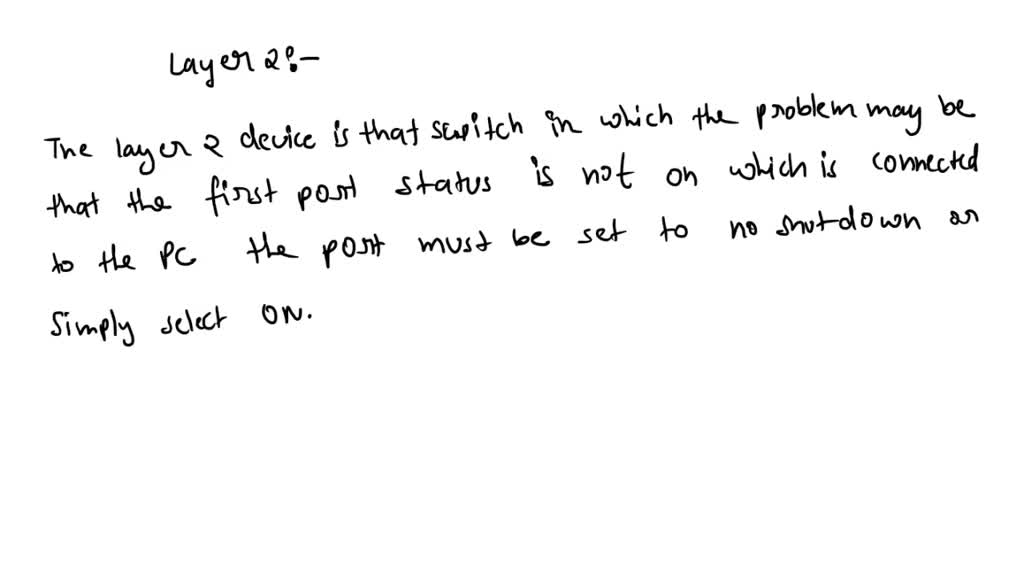 Layer 2:-
The layer 2 device is that switch in which the problem may be
that the first port status is not on which is connected
to the PC the port must be set to no shutdown or
Simply select ON.